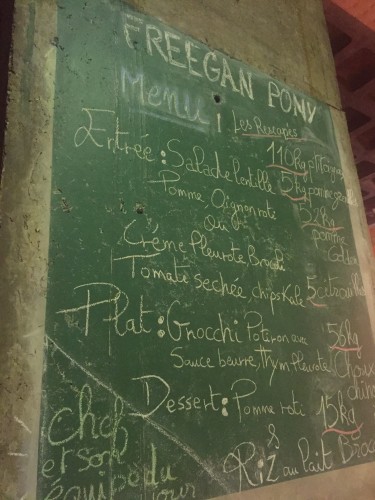 FREEGAN PONY
Menu
Les Rescapés
Entrée : Salade lentille
110kg
Pomme Oignon roti
5kg pomme
Ou
52kg
pomme
Golden
Crème Pleurote Brocoli
Tomate sechée, chips Kale
5
Plat : Gnocchi Potiron avec
Sauce beurre, Thym, Pleurote
56kg
Choux
chinois
Dessert : Pomme roti
15kg
&
Riz au lait
Chef
et son
équipe du
jour